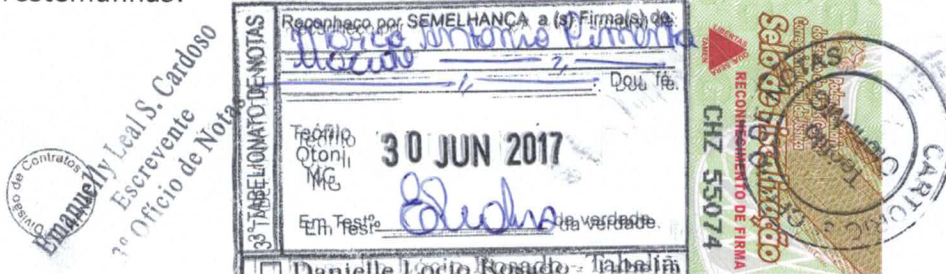 Testemunhas:
Divisão de Contratos
Emanuelly Leal S. Cardoso
Escrevente
3º Ofício de Notas
3º TABELIONATO DE NOTAS
Reconheço por SEMELHANÇA a (s) Firma(s) de
Marco Antonio Pimenta
Dou fé.
Teófilo
Otoni
MG
30 JUN 2017
Em Testº da verdade.
Danielle Tabeliã
RECONHECIMENTO DE FIRMA
CHZ 55074
Selo de Fiscalização